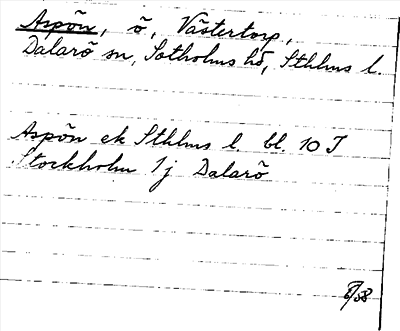 Aspön, ö, Västertorp,
Dalarö sn, Sotholms hd, Sthlms l.
Aspön ek Sthlms l. bl. 10 I
Stockholm 1 j Dalarö
/58